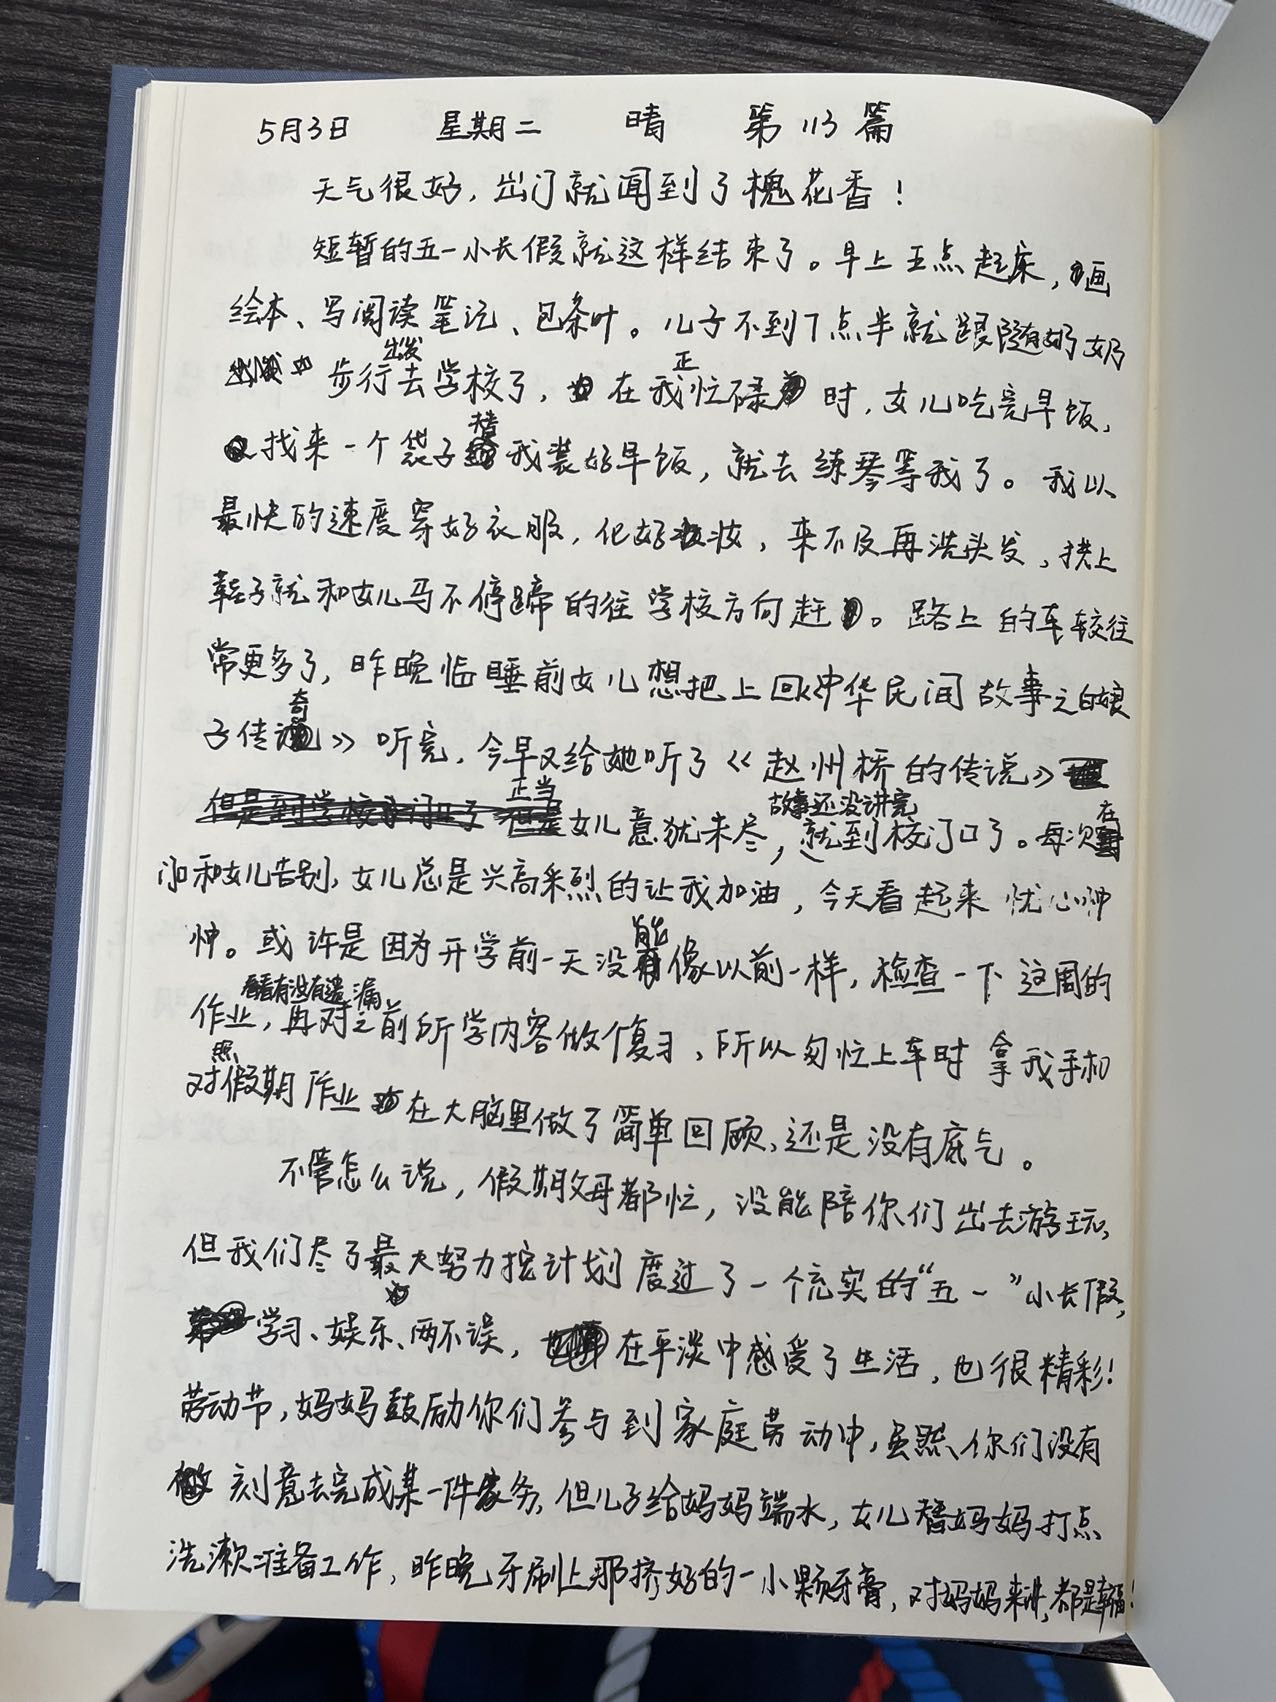 5月3日 星期二 晴 第113篇
天气很好，出门就闻到了槐花香！
短暂的五一小长假就这样结束了。早上五点起床，画
绘本、写阅读笔记、包条叶。儿子不到7点半就跟随奶奶
步行出发去学校了，在我正忙碌时，女儿吃完早饭，
找来一个袋子替我装好早饭，就去练琴等我了。我以
最快的速度穿好衣服，化好妆，来不及再洗头发，换上
鞋子就和女儿马不停蹄的往学校方向赶。路上的车较往
常更多了，昨晚临睡前女儿想把上回《中华民间故事之白娘
子传奇》听完，今早又给她听了《赵州桥的传说》
正当女儿意犹未尽，故事还没讲完就到校门口了。每次在
门口和女儿告别，女儿总是兴高采烈的让我加油，今天看起来忧心忡
忡。或许是因为开学前一天没能像以前一样，检查一下这周的
作业，看看有没有遗漏再对之前所学内容做个复习，所以匆忙上车时拿我手机
对照假期作业在大脑里做了简单回顾，还是没有底气。
不管怎么说，假期父母都忙，没能陪你们出去游玩，
但我们尽了最大努力按计划度过了一个充实的“五一”小长假，
学习、娱乐、两不误，在平淡中感受了生活，也很精彩！
劳动节，妈妈鼓励你们参与到家庭劳动中，虽然你们没有
刻意去完成某一件家务，但儿子给妈妈端水，女儿替妈妈打点
洗漱准备工作，昨晚牙刷上那挤好的一小颗牙膏，对妈妈来讲，都是幸福！